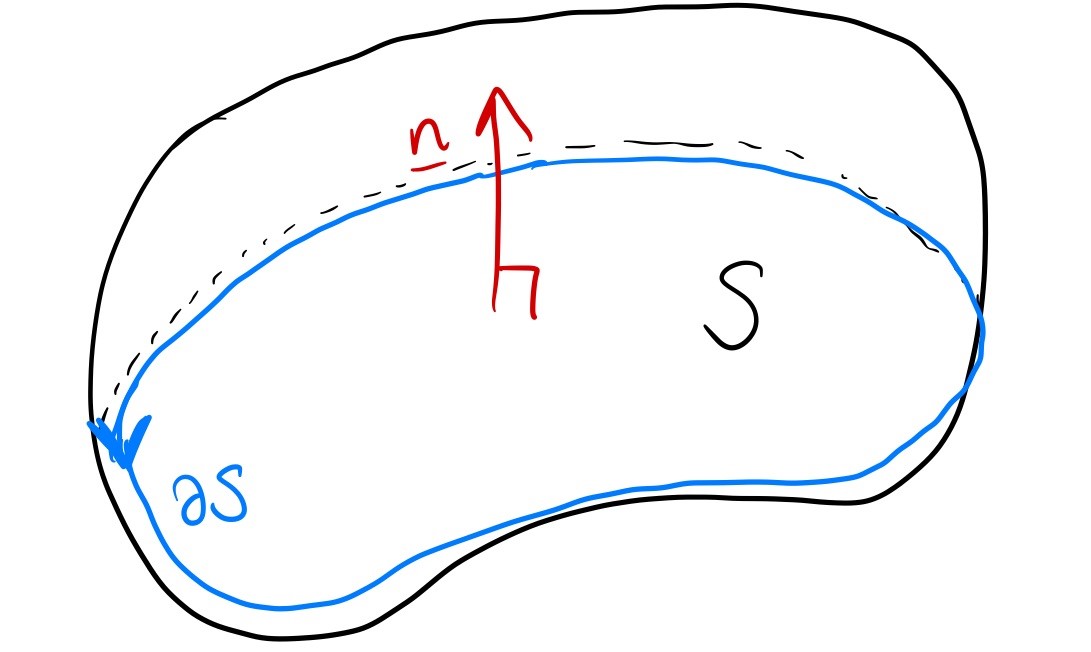 n
S
∂S